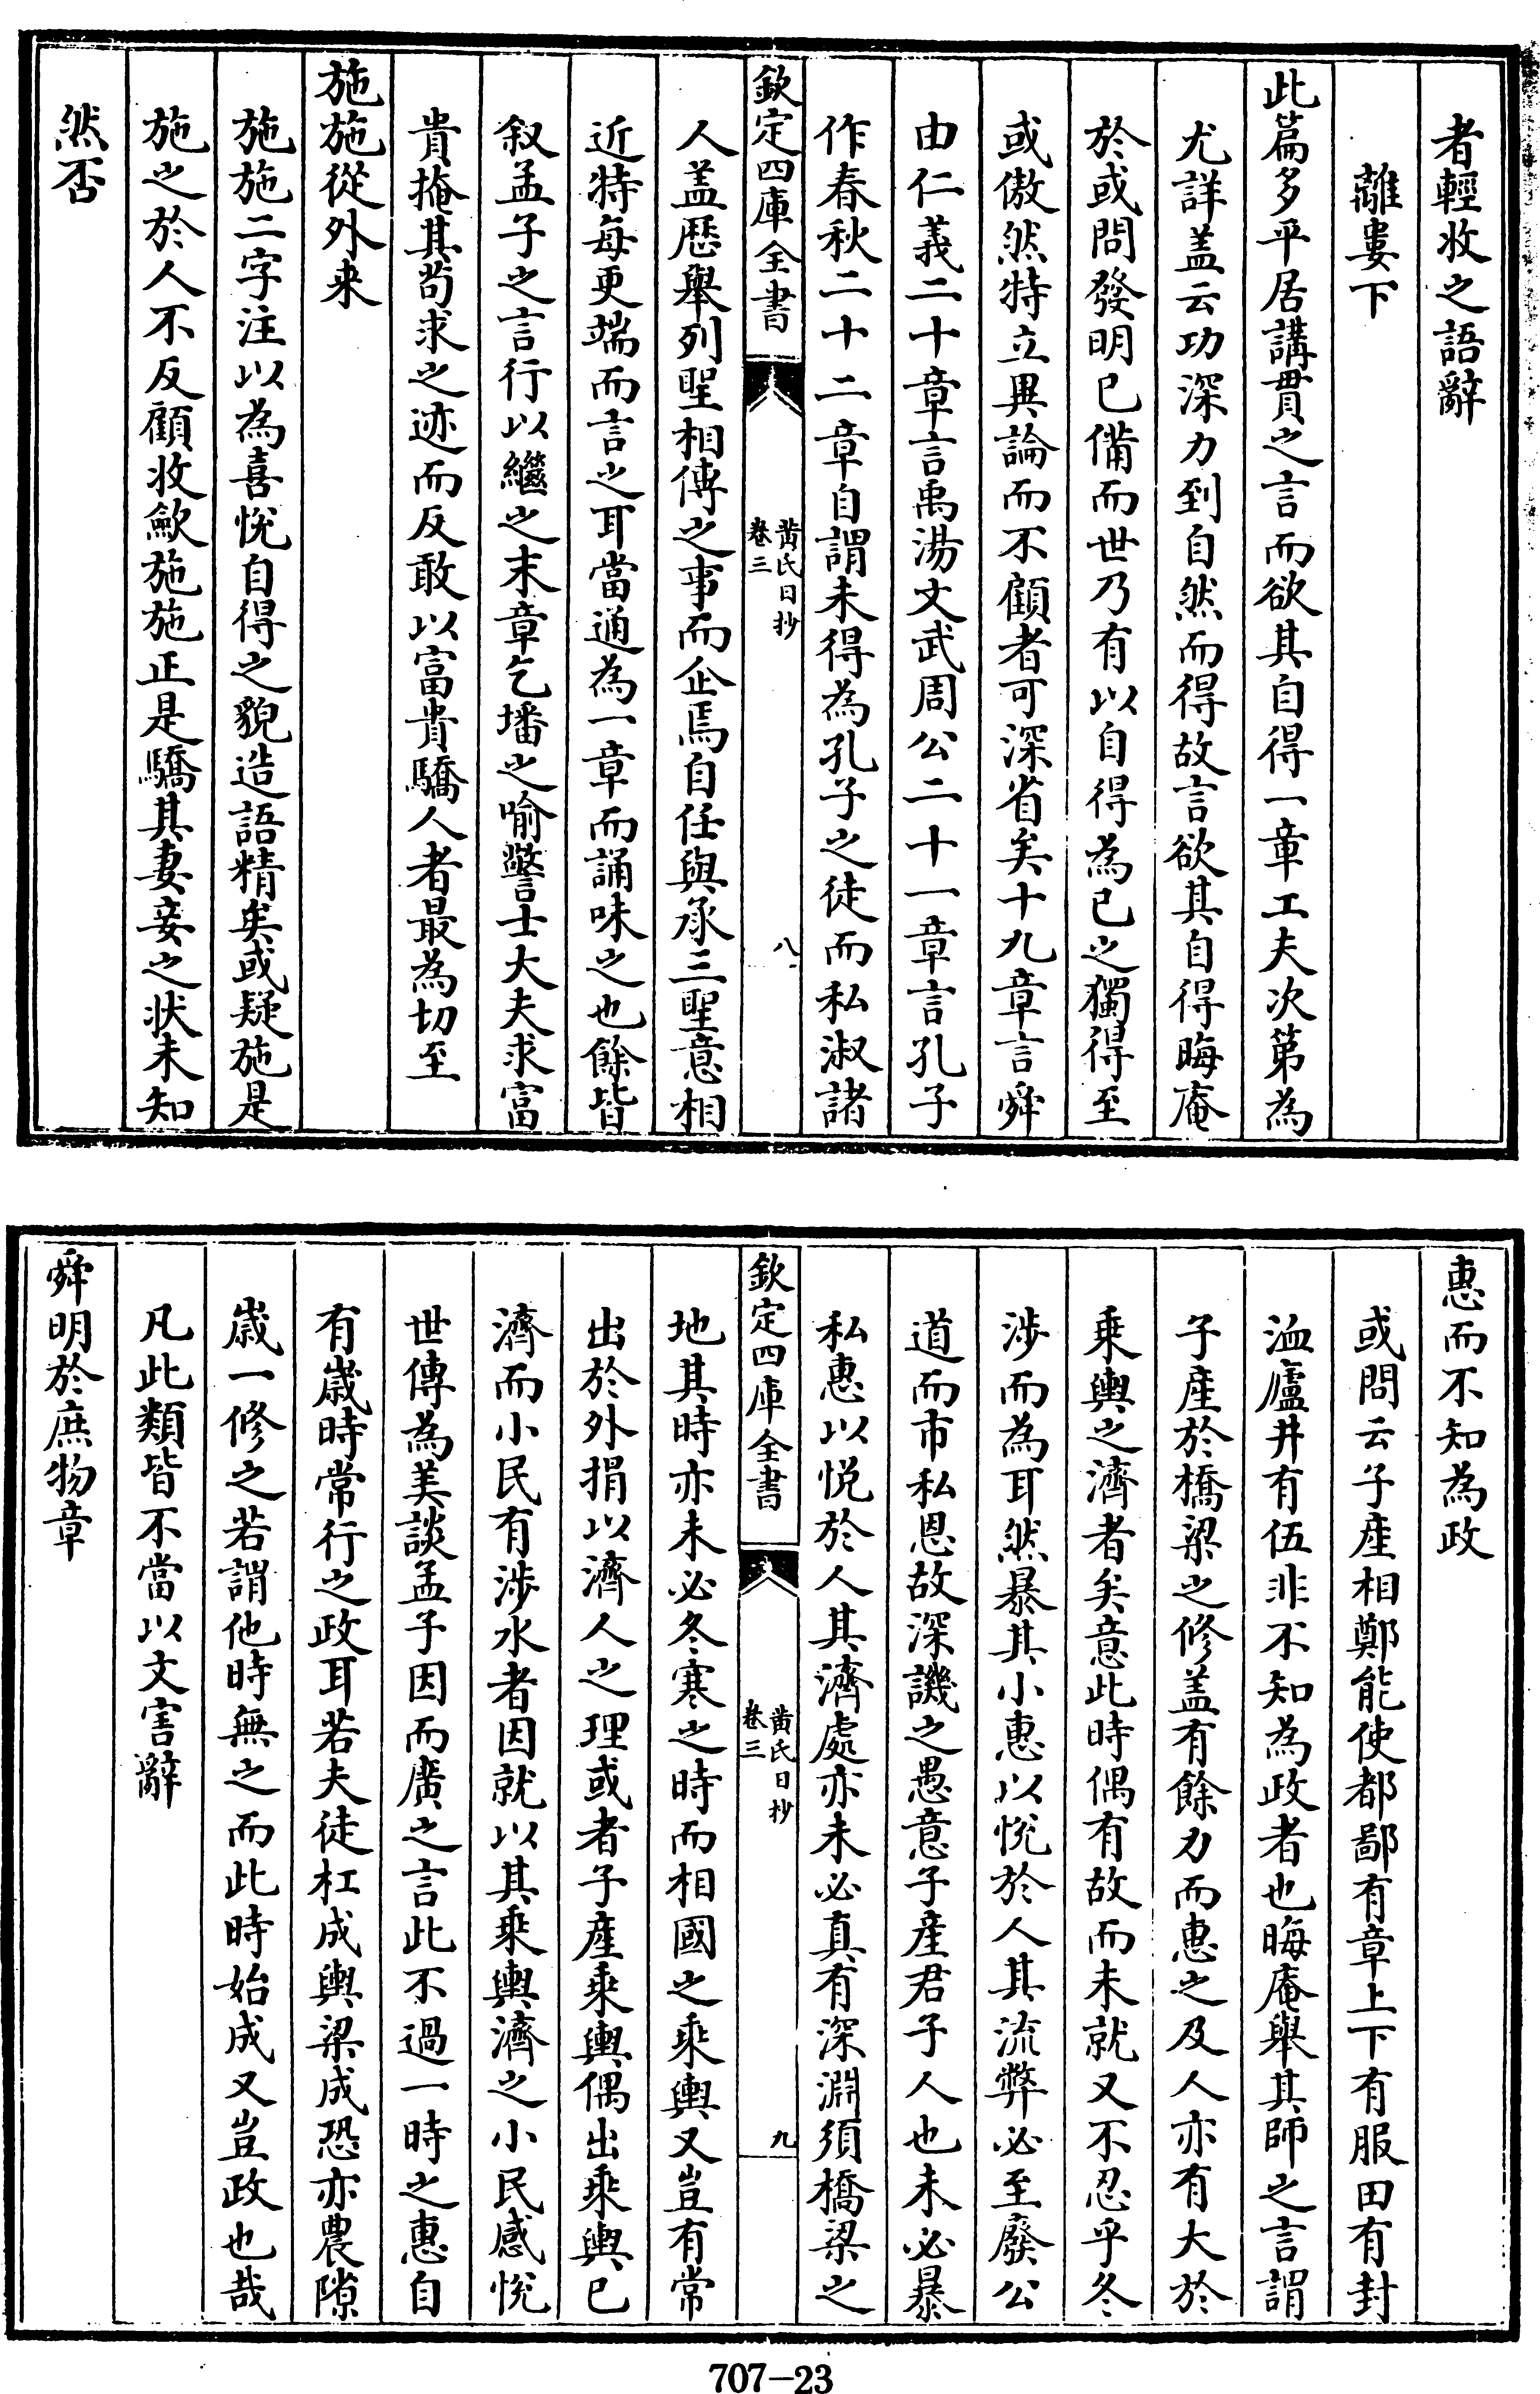 者輕收之語辭
離婁下
此篇多平居講貫之言而欲其自得一章工夫次第為
尤詳盖云功深力到自然而得故言欲其自得晦庵
於或問發明已備而世乃有以自得為已之獨得至
或傲然特立異論而不顧者可深省矣十九章言舜
由仁義二十章言禹湯文武周公二十一章言孔子
作春秋二十二章自謂未得為孔子之徒而私淑諸
欽定四庫全書
黄氏日抄
卷三
八
人盖歷舉列聖相傳之事而企焉自任與承三聖意相
近特每更端而言之耳當通為一章而誦味之也餘皆
叙孟子之言行以繼之末章乞墦之喻警士大夫求富
貴掩其苟求之迹而反敢以富貴驕人者最為切至
施施從外来
施施二字注以為喜悅自得之貌造語精矣或疑施是
施之於人不反顧收歛施施正是驕其妻妾之状未知
然否
惠而不知為政
或問云子産相鄭能使都鄙有章上下有服田有封
洫廬井有伍非不知為政者也晦庵舉其師之言謂
子産於橋梁之修盖有餘力而惠之及人亦有大於
乗輿之濟者矣意此時偶有故而未就又不忍乎冬
涉而為耳然暴其小惠以悅於人其流弊必至廢公
道而市私恩故深譏之愚意子産君子人也未必暴
私惠以悦於人其濟處亦未必真有深淵須橋梁之
欽定四庫全書
黄氏日抄
卷三
九
地其時亦未必冬寒之時而相國之乘輿又豈有常
出於外捐以濟人之理或者子産乘輿偶出乘輿已
濟而小民有涉水者因就以其乘輿濟之小民感悅
世傳為美談孟子因而廣之言此不過一時之惠自
有歳時常行之政耳若夫徒杠成輿梁成恐亦農隙
歳一修之若謂他時無之而此時始成又豈政也哉
凡此類皆不當以文害辭
舜明於庶物章
707-23